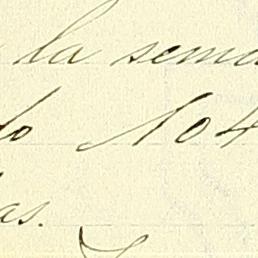 la sema
do No 4
as.